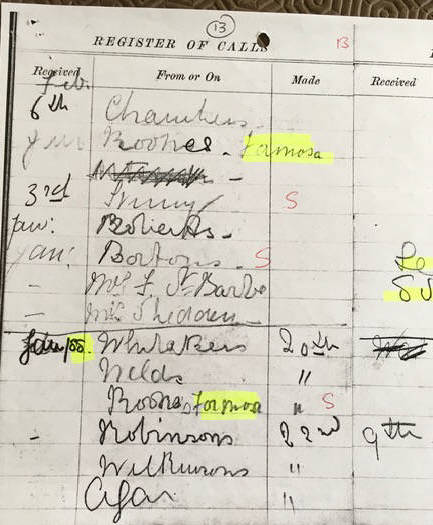 13
REGISTER OF CALLS 13
Received From or On Made Received
Feb.
6th Chambers
Jan Roones - Formosa
3rd S
Jan: Roberts -
Jan: Bortons - S
- Mrs F St Barbe
- Mrs Shedden -
Jan/00. Whitakers 20th
Welds "
Roones, Formosa " S
- Robinsons 22nd 9th
Wilkinsons "
Agar "